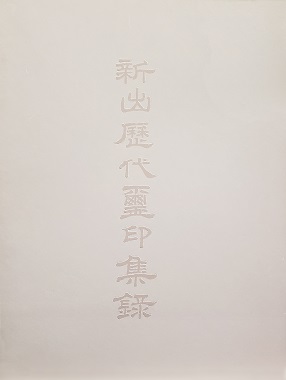 新出歷代璽印集錄